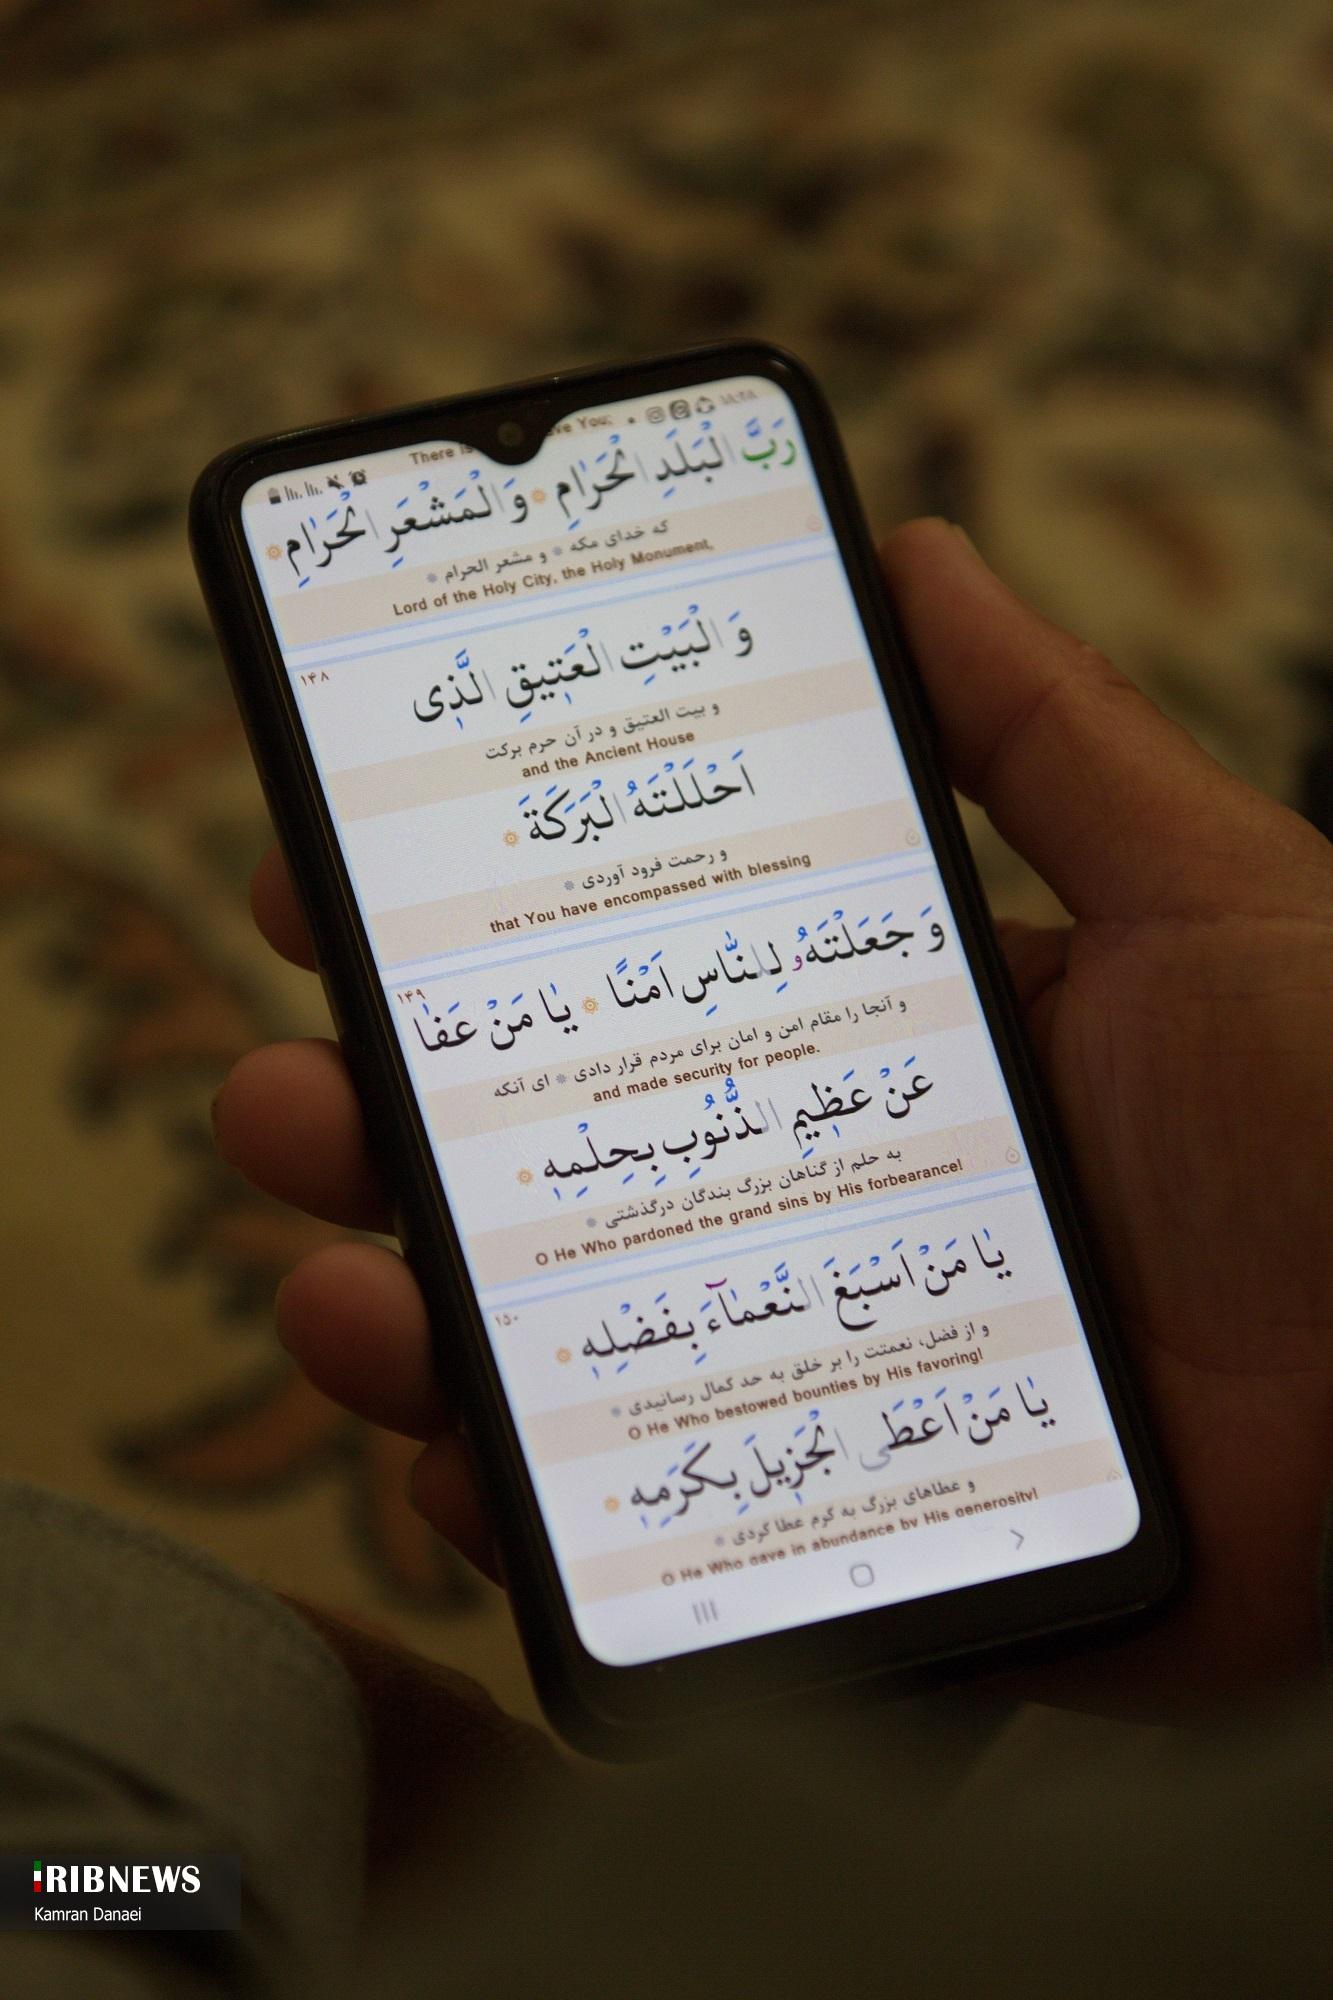 There is ve You;
رَبَّ الْبَلَدِ الْحَرٰامِ ۞ وَ الْمَشْعَرِ الْحَرٰامِ ۞
که خدای مکه * و مشعر الحرام *
Lord of the Holy City, the Holy Monument,
۱۴۸
وَ الْبَيْتِ الْعَتيقِ الَّذى
و بیت العتیق و در آن حرم برکت
and the Ancient House
اَحْلَلْتَهُ الْبَرَكَةَ ۞
و رحمت فرود آوردی *
that You have encompassed with blessing
۱۴۹
وَ جَعَلْتَهُو لِلنّٰاسِ اَمْنًا ۞ يٰا مَنْ عَفٰا
و آنجا را مقام امن و امان برای مردم قرار دادی * ای آنکه
and made security for people.
عَنْ عَظيمِ الذُّنُوبِ بِحِلْمِهٖ ۞
به حلم از گناهان بزرگ بندگان درگذشتی *
O He Who pardoned the grand sins by His forbearance!
۱۵۰
يٰا مَنْ اَسْبَغَ النَّعْمٰآءَ بِفَضْلِهٖ ۞
و از فضل، نعمتت را بر خلق به حد کمال رسانیدی *
O He Who bestowed bounties by His favoring!
يٰا مَنْ اَعْطَى الْجَزيلَ بِكَرَمِهٖ ۞
و عطاهای بزرگ به کرم عطا کردی *
O He Who gave in abundance by His generosity!
IRIBNEWS
Kamran Danaei